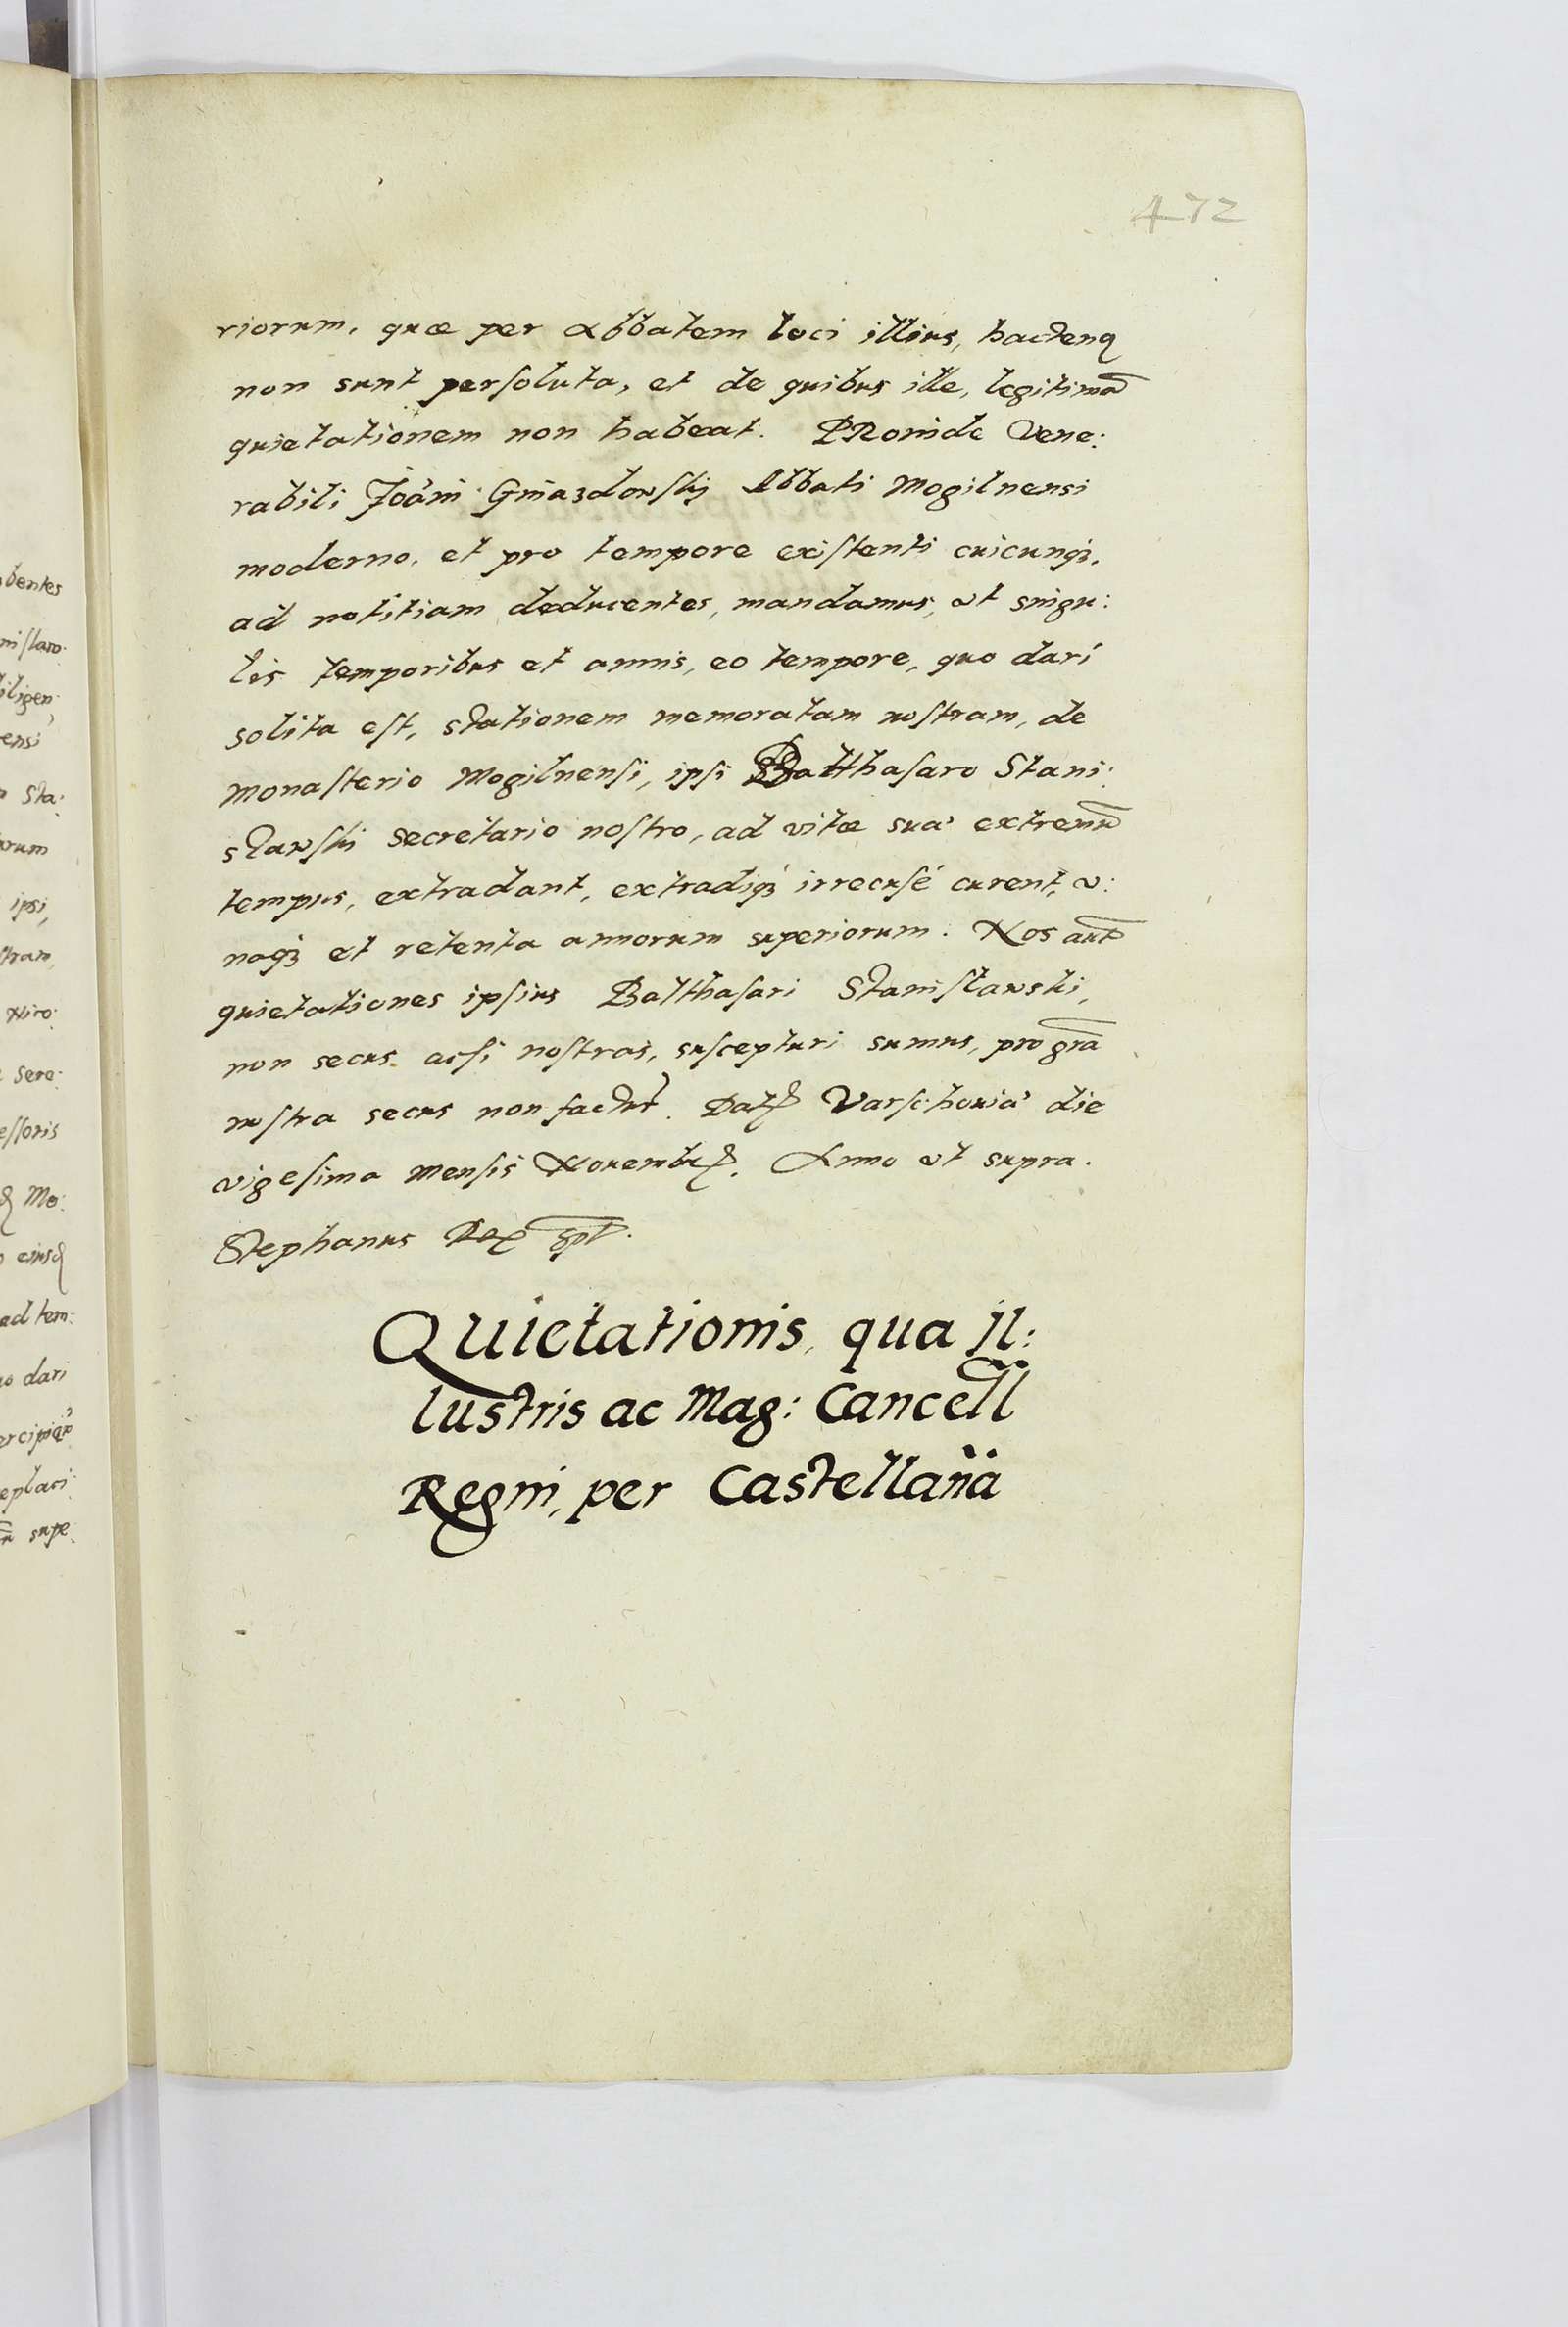 472
riorum, quæ per Abbatem loci illius, hactenq
non sunt persoluta, et de quibus ille, legitimã
quietationem non habeat. PRoinde Vene:
rabili Joãni Gniazdowskij Abbati Mogilnensi
moderno, et pro tempore existenti cuicunqз,
ad notitiam deducentes, mandamus, ut singu:
lis temporibus et annis, eo tempore, quo dari
solita est, stationem memoratam nostram, de
monasterio Mogilnensi, ipsi Balthasaro Stani:
slawski secretario nostro, ad vitæ suæ extremũ
tempus, extradant, extradiqз irrecusé curent, u:
naqз et retenta annorum superiorum. Nos aut
quietationes ipsius Balthasari Stanislawski,
non secus acsi nostras, suscepturi sumus, pro grã
nostra secus non factur. Dat Varschouiæ die
vigesima mensis Nouembr. Anno ut supra.
Stephanus Rex spt.
Quietationis, qua Jl:
lustris ac Mag: Cancell
Regni, per Castellanã
bentes
nislaw:
iligen:
ensi
Sta:
orum
ipsi,
stram,
Niro:
Sere:
essoris
Mo:
eiusd
ad tem:
uo dari
ercipiẽ
eptaci:
supe: